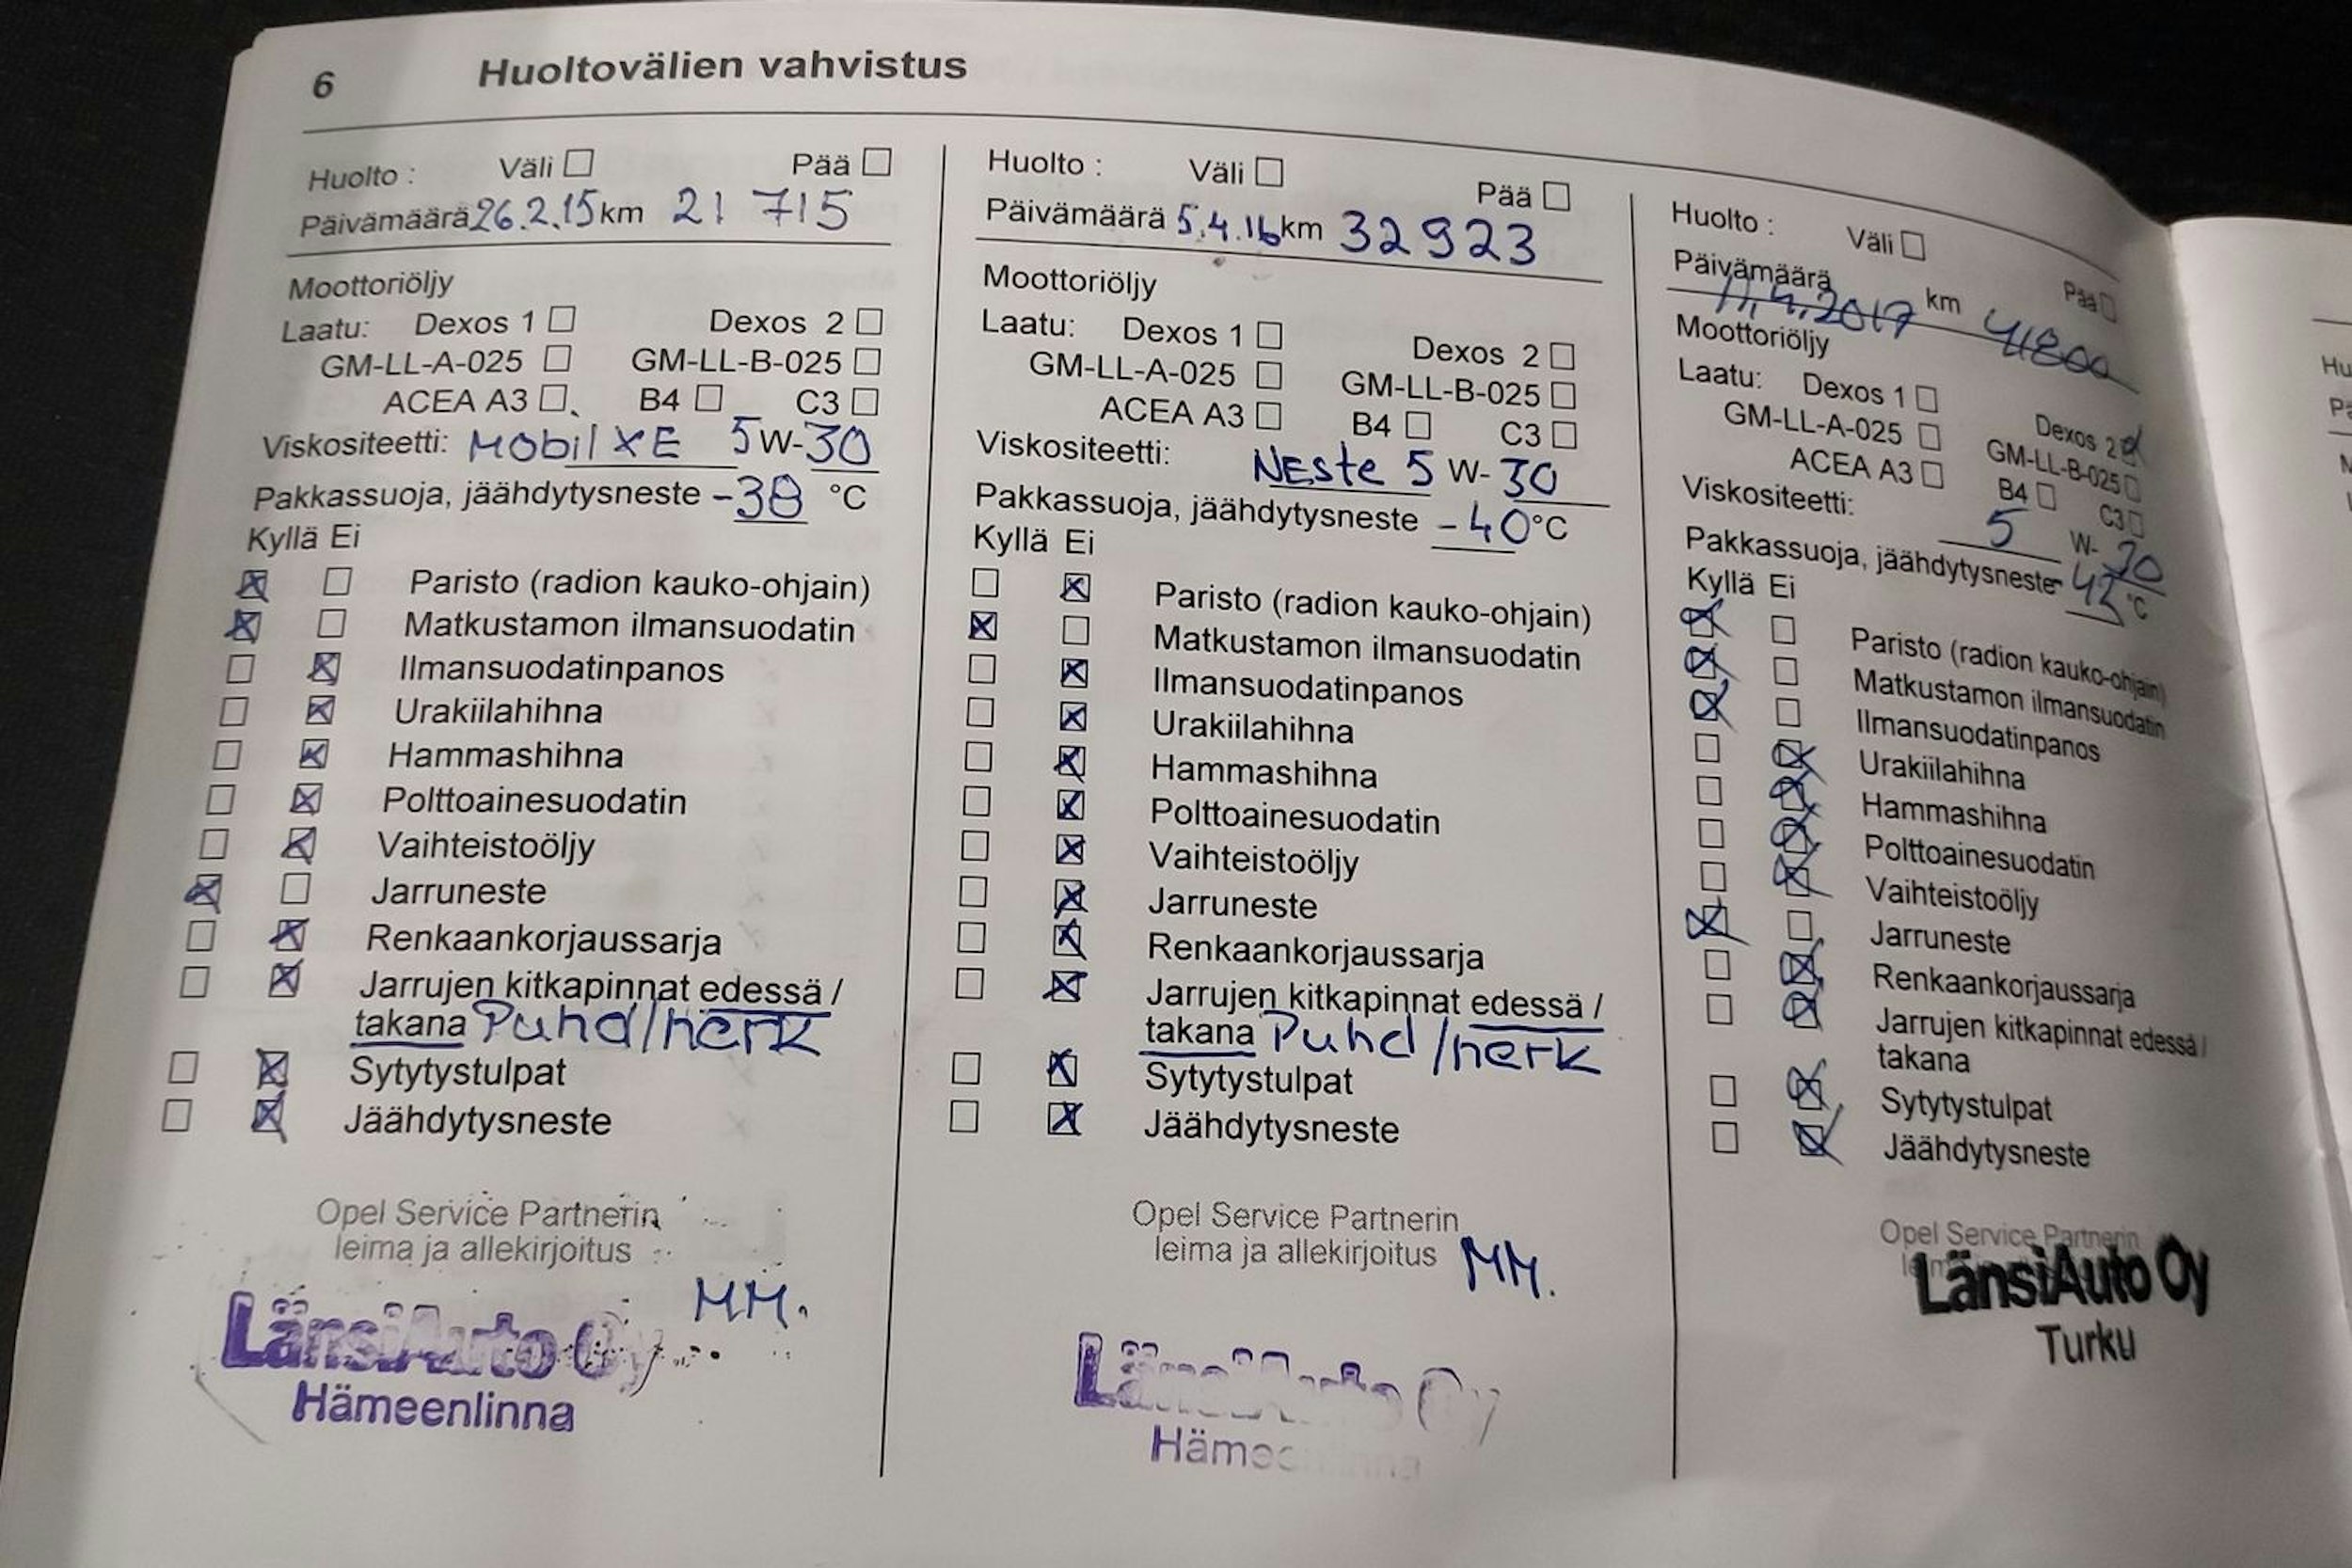 6 Huoltovälien vahvistus
Huolto : Väli Pää
Päivämäärä 26.2.15 km 21 715
Moottoriöljy
Laatu: Dexos 1 Dexos 2
GM-LL-A-025 GM-LL-B-025
ACEA A3 B4 C3
Viskositeetti: Mobil XE 5 W-30
Pakkassuoja, jäähdytysneste -38 °C
Kyllä Ei
Paristo (radion kauko-ohjain)
Matkustamon ilmansuodatin
Ilmansuodatinpanos
Urakiilahihna
Hammashihna
Polttoainesuodatin
Vaihteistoöljy
Jarruneste
Renkaankorjaussarja
Jarrujen kitkapinnat edessä /
takana Puhd/herk
Sytytystulpat
Jäähdytysneste
Opel Service Partnerin
leima ja allekirjoitus
MM.
LänsiAuto Oy
Hämeenlinna
Huolto : Väli Pää
Päivämäärä 5.4.16 km 32923
Moottoriöljy
Laatu: Dexos 1 Dexos 2
GM-LL-A-025 GM-LL-B-025
ACEA A3 B4 C3
Viskositeetti: Neste 5 W-30
Pakkassuoja, jäähdytysneste -40 °C
Kyllä Ei
Paristo (radion kauko-ohjain)
Matkustamon ilmansuodatin
Ilmansuodatinpanos
Urakiilahihna
Hammashihna
Polttoainesuodatin
Vaihteistoöljy
Jarruneste
Renkaankorjaussarja
Jarrujen kitkapinnat edessä /
takana Puhd/herk
Sytytystulpat
Jäähdytysneste
Opel Service Partnerin
leima ja allekirjoitus MM.
LänsiAuto Oy
Hämeenlinna
Huolto : Väli Pää
Päivämäärä 11.4.2017 km 41800
Moottoriöljy
Laatu: Dexos 1 Dexos 2
GM-LL-A-025 GM-LL-B-025
ACEA A3 B4 C3
Viskositeetti: 5 W-30
Pakkassuoja, jäähdytysneste °C
Kyllä Ei
Paristo (radion kauko-ohjain)
Matkustamon ilmansuodatin
Ilmansuodatinpanos
Urakiilahihna
Hammashihna
Polttoainesuodatin
Vaihteistoöljy
Jarruneste
Renkaankorjaussarja
Jarrujen kitkapinnat edessä /
takana
Sytytystulpat
Jäähdytysneste
Opel Service Partnerin
LänsiAuto Oy
Turku